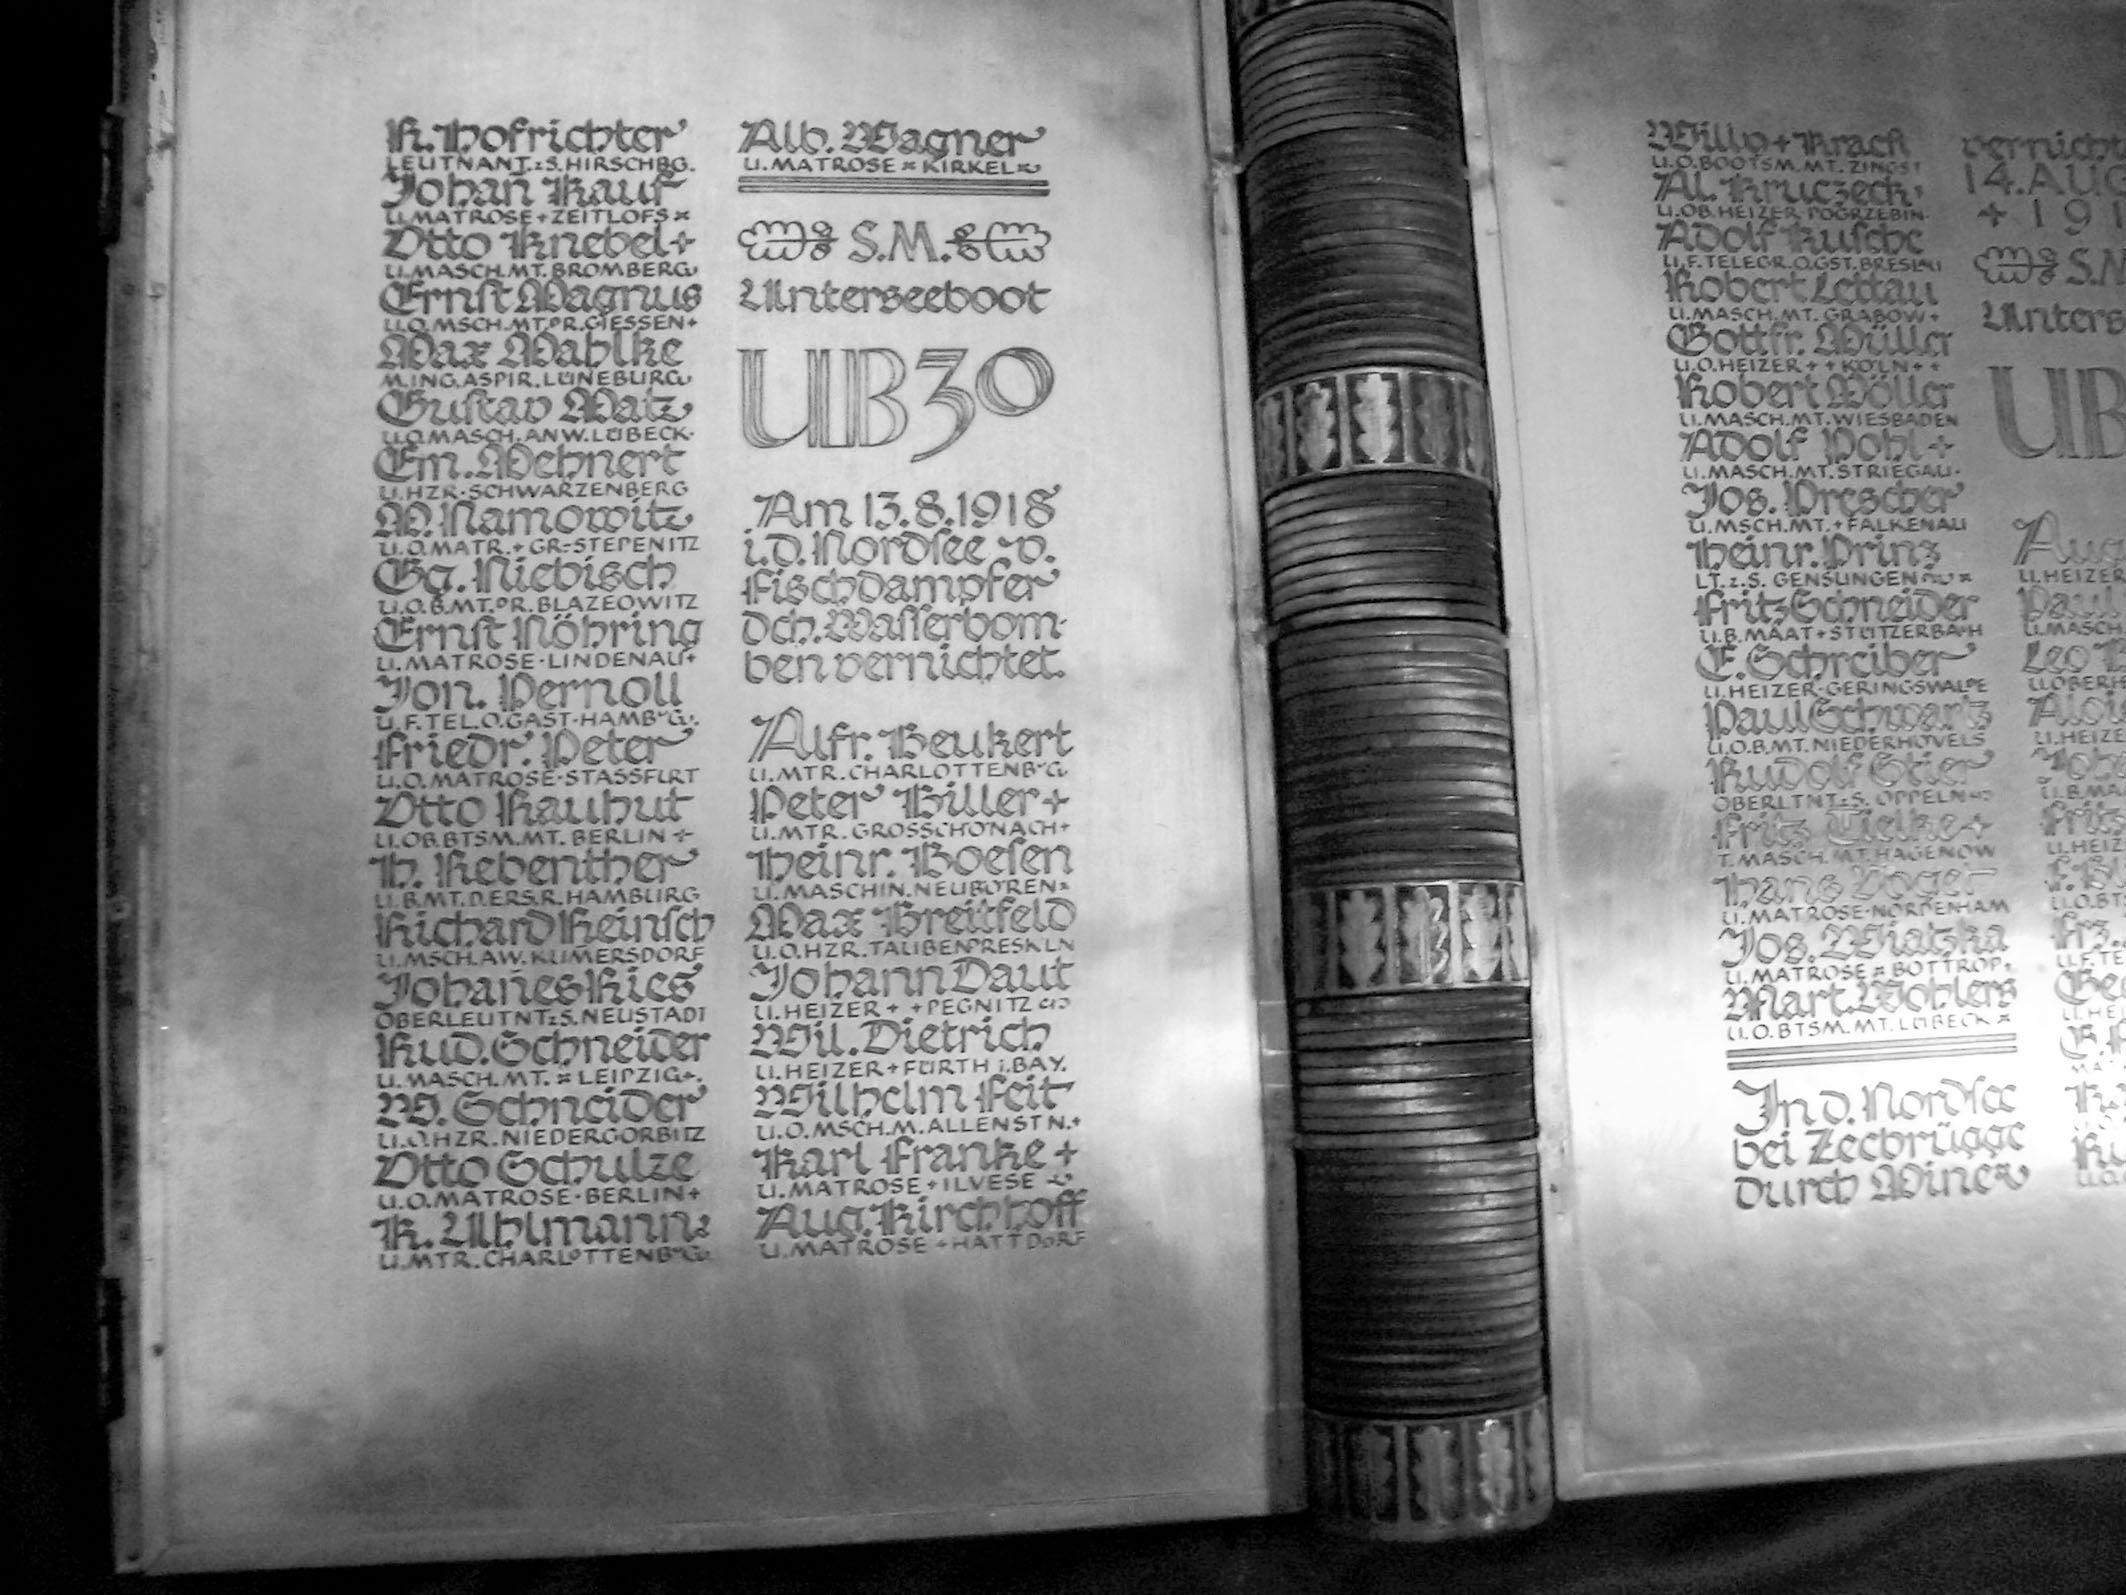 K. Hofrichter
LEUTNANT.z.S.HIRSCHBG.
Johan̄ Kauf
U.MATROSE+ZEITLOFS
Otto Knebel+
U.MASCH.MT. BROMBERG
Ernst Magnus
U.O.MSCH.MT.PR.GIESSEN+
Max Mahlke
M.ING.ASPIR.LÜNEBURG
Gustav Matz
U.O.MASCH.ANW.LÜBECK·
Em. Mehnert
U.HZR·SCHWARZENBERG
M. Namowitz
U.O.MATR.+GR=STEPENITZ
Gg. Niebisch
U.O.B.MT.PR. BLAZEOWITZ
Ernst Nöhring
U.MATROSE·LINDENAU+
Jon. Pernoll
U.F.TEL.O.GAST·HAMB'G.
Friedr. Peter
U.O.MATROSE·STASSFURT
Otto Rauhut
U.OB.BTSM.MT. BERLIN +
H. Rebenther
U.B.MT.D.ERS.R.HAMBURG
Richard Reinsch
U.MSCH.AW.KUMERSDORF
Johan̄es Ries
OBERLEUTNT.z.S.NEUSTADT
Rud. Schneider
U.MASCH.MT. LEIPZIG+.
W. Schneider
U.O.HZR.NIEDERGORBITZ
Otto Schulze
U.O.MATROSE·BERLIN+
K. Uhlmann
U.MTR.CHARLOTTENB'G
Alb. Wagner
U.MATROSE KIRKEL
S.M.
Unterseeboot
UB30
Am 13.8.1918
i.d.Nordsee v.
Fischdampfer
dch.Wasserbom-
ben vernichtet.
Alfr. Beukert
U.MTR.CHARLOTTENB'G
Peter Biller+
U.MTR.GROSSCHÖNACH+
Heinr. Boesen
U.MASCHIN.NEUBÖREN
Max Breitfeld
U.O.HZR.TAUBENPRESKLN
Johann Daut
U.HEIZER++PEGNITZ
Wil. Dietrich
U.HEIZER+FÜRTH i.BAY.
Wilhelm Feit
U.O.MSCH.M.ALLENSTN.+
Karl Franke+
U.MATROSE+ILVESE
Aug. Kirchhoff
U.MATROSE+HATTDORF
Willy+Krach
U.O.BOOTSM.MT.ZINGST
Al. Kruczeck
U.OB.HEIZER POGRZEBIN
Adolf Kusche
U.F.TELEGR.O.GST.BRESLAU
Robert Lettau
U.MASCH.MT.GRABOW+
Gottfr. Müller
U.O.HEIZER++KÖLN++
Robert Möller
U.MASCH.MT.WIESBADEN
Adolf Pohl+
U.MASCH.MT.STRIEGAU·
Jos. Prescher
U.MSCH.MT.+FALKENAU
Heinr. Prinz
LT.z.S. GENSUNGEN
Fritz Schneider
U.B.MAAT+STÜTZERBACH
E. Schreiber
U.HEIZER·GERINGSWALDE
Paul Schwartz
U.O.B.MT.NIEDERHÖVELS
Rudolf Stier
OBERLTNT.z.S. OPPELN
Fritz Tielke+
T.MASCH.MT.HAGENOW
Hans Voger
U.MATROSE·NORDENHAM
Jos. Wiatzka
U.MATROSE BOTTROP+
Mart. Wohlers
U.O.BTSM.MT.LÜBECK
In d. Nordsee
bei Zeebrügge
durch Mine
14.AUG
+ 19
S.M
UB
U.HEIZER
Paul
U.MASCH
Leo
U.HEIZE